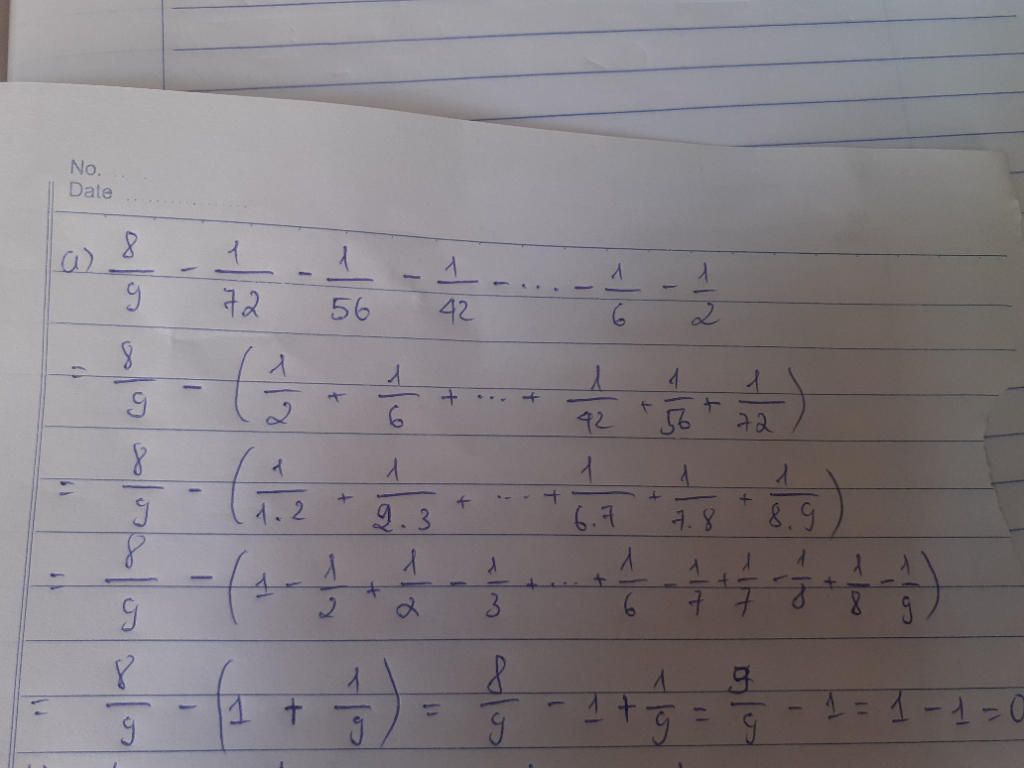 No. ....
Date ................
a) 8/9 - 1/72 - 1/56 - 1/42 - .... - 1/6 - 1/2
= 8/9 - (1/2 + 1/6 + ... + 1/42 + 1/56 + 1/72)
= 8/9 - (1/1.2 + 1/2.3 + .... + 1/6.7 + 1/7.8 + 1/8.9)
= 8/9 - (1 - 1/2 + 1/2 - 1/3 + ... + 1/6 - 1/7 + 1/7 - 1/8 + 1/8 - 1/9)
= 8/9 - (1 + 1/9) = 8/9 - 1 + 1/9 = 9/9 - 1 = 1 - 1 = 0